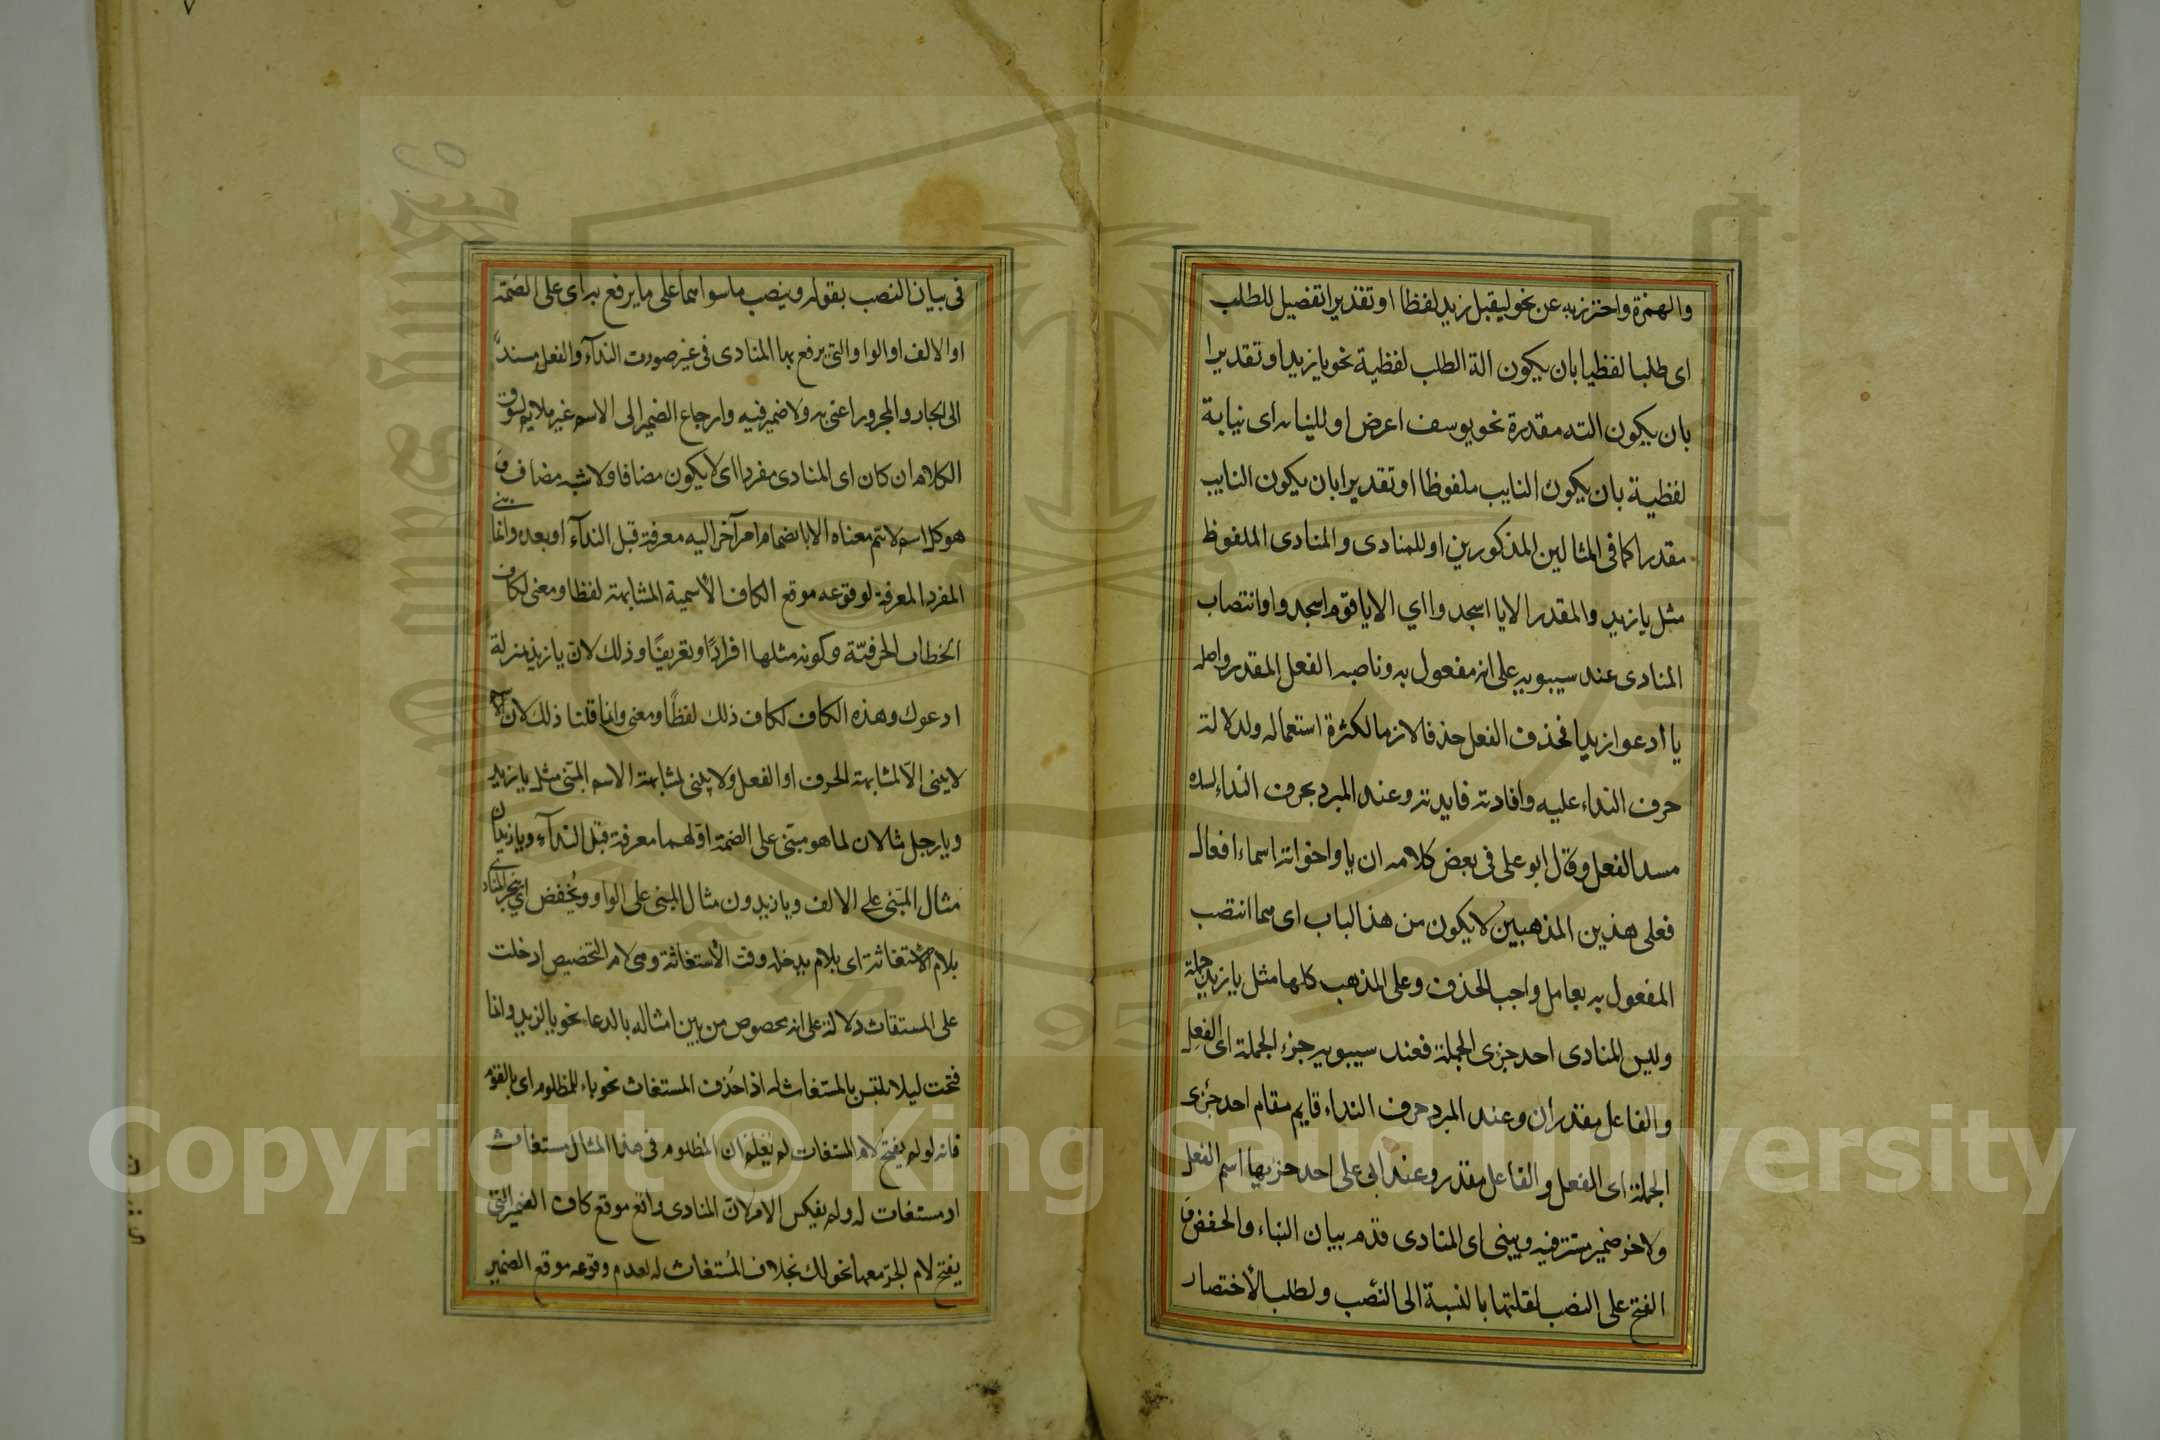 والهمزة واحترز به عن نحو ليقبل زيد لفظا او تقديرا تفصيل للطلب
اى طلبا لفظيا بان يكون الة الطلب لفظية نحو يا زيد او تقديرا
بان يكون الته مقدرة نحو يوسف اعرض او للنيابة اى نيابة
لفظية بان يكون النايب ملفوظا او تقديرا بان يكون النايب
مقدرا كما فى المثالين المذكورين او للمنادى والمنادى الملفوظ
مثل يا زيد والمقدر الا يا اسجدوا اي الا يا قوم اسجدوا وانتصاب
المنادى عند سيبويه على انه مفعول به وناصبه الفعل المقدر واصله
يا ادعوا زيدا فحذف الفعل حذفا لازما لكثرة استعماله ولدلالة
حرف النداء عليه وافادته فايدته وعند المبرد بحرف النداء لسده
مسد الفعل وقال ابو على فى بعض كلامه ان يا واخواته اسماء افعال
فعلى هذين المذهبين لا يكون من هذا الباب اى مما انتصب
المفعول به بعامل واجب الحذف وعلى المذهب كلها مثل يا زيد جملة
وليس المنادى احد جزى الجملة فعند سيبويه جزء الجملة اى الفعل
والفاعل مقدران وعند المبرد حرف النداء قايم مقام احد جزئى
الجملة اى الفعل والفاعل مقدر وعند ابى على احد جزيها اسم الفعل
ولاخر ضمير مستتر فيه ويبنى اى المنادى قدم بيان البناء والخفض و
الفتح على النصب لقلتها بالنسبة الى النصب ولطلب الأختصار
فى بيان النصب بقوله وينصب ما سواهما على ما يرفع به اى على الضمة
او الالف او الواو التى يرفع بها المنادى فى غير صورت الندآء والفعل مسند
الى الجار والمجرور اعنى به ولا ضمير فيه وارجاع الضمير الى الاسم غير ملايم لسوق
الكلام ان كان اى المنادى مفردا اى لا يكون مضافا ولا شبه مضاف و
هو كل اسم لا يتم معناه الا بانضمام امر آخر اليه معرفة قبل الندآء او بعده وانما يبنى
المفرد المعرفة لوقوعه موقع الكاف الأسمية المشابهة لفظا ومعنى لكاف
الخطاب الحرفيّة وكونه مثلها افرادًا وتعريفًا وذلك لان يا زيد بمنزلة
ادعوك وهذه الكاف ككاف ذلك لفظًا ومعنى وانما قلنا ذلك لان الاسم
لا يبنى الّا لمشابهة الحرف او الفعل ولا يبنى لمشابهة الاسم المبنى مثل يا زيد
ويا رجل مثالان لما هو مبنى على الضمة اولهما معرفة قبل الندآء ويا زيدان
مثال المبنى على الالف ويا زيدون مثال المبنى على الواو ويُخفض اى ينجر المنادى
بلام الاستغاثة اى بلام يدخله وقت الأستغاثة وهى لام التخصيص ادخلت
على المستغاث دلالة على انه مخصوص من بين امثاله بالدعاء نحو يا لزيد وانما
فتحت ليلا يلتبس بالمستغاث له اذا حُذف المستغاث نحو يا للمظلوم اى يا لقوم
فانه لو لم يفتح لام المستغاث لم يعلم ان المظلوم فى هذا المثال مستغاث
او مستغاث له ولم يعكس الامر لان المنادى واقع موقع كاف الضمير التى
يفتح لام الجر معها نحو لك بخلاف المُستغاث له لعدم وقوعه موقع الضمير
Copyright © King Saud University